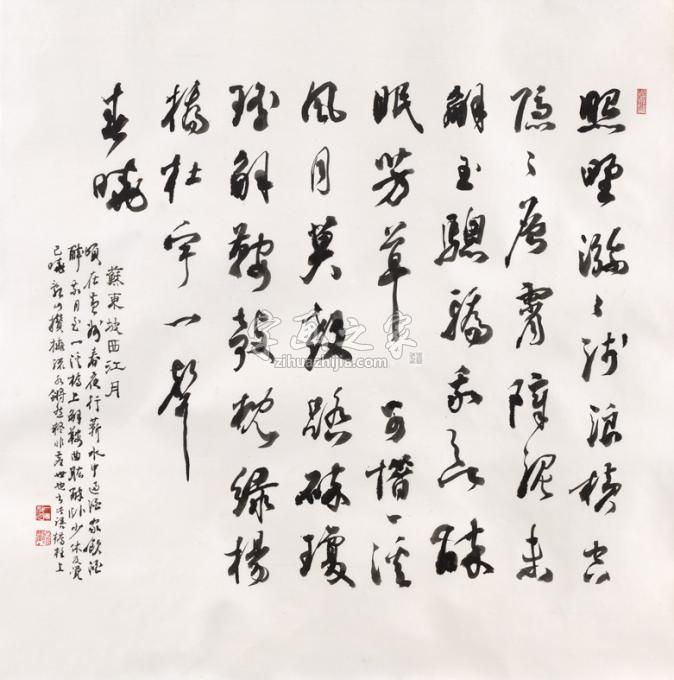 照野瀰〻淺浪橫空
隱〻層霄障泥未
解玉驄驕我欲醉
眠芳草 可惜一溪
風月莫教踏碎瓊
瑤解鞍欹枕綠楊
橋杜宇一聲
春曉
蘇東坡西江月
頃在黃州春夜行蘄水中過酒家飲酒
醉乘月至一溪橋上解鞍曲肱醉卧少休及覺
已曉亂山攢擁流水鏘然疑非塵世也書此語橋柱上
字画之家
zihuazhijia.com